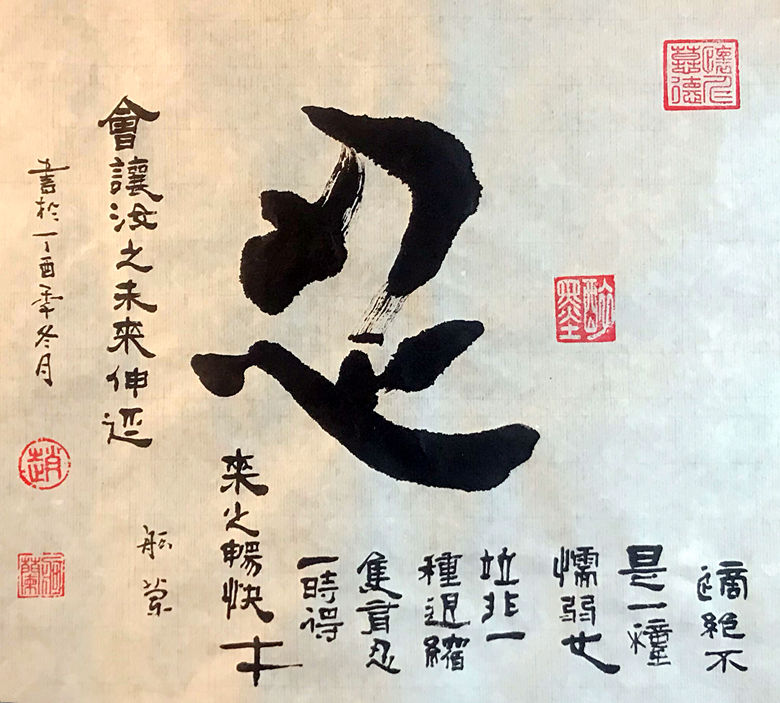 忍
適絕不
是一種
懦弱也
並非一
種退縮
隻有忍
一時得
來之暢快才
會讓汝之未來伸延
書於丁酉年冬月
趙